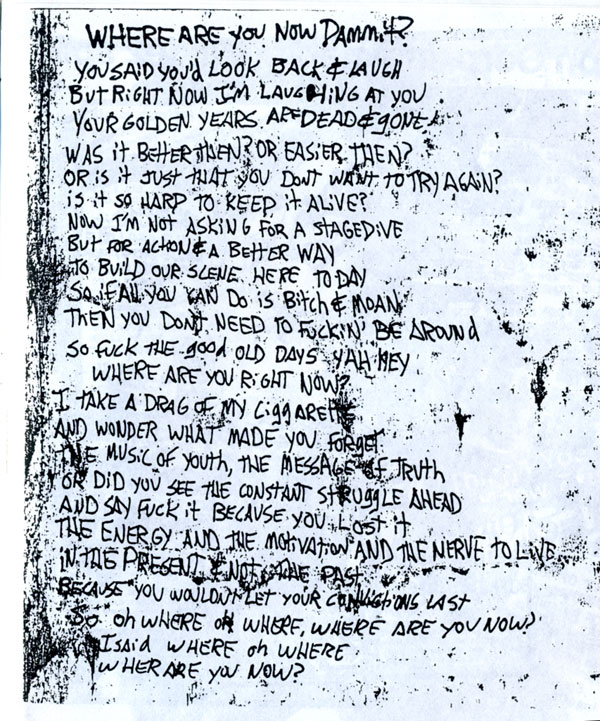 WHERE ARE YOU NOW DAMMIT?
YOU SAID YOU'd LOOK BACK & LAUGH
BUT RIGHT NOW I'M LAUGHING AT YOU
YOUR GOLDEN YEARS ARE DEAD & GONE
WAS it BETTER THEN? OR EASIER THEN?
OR is it JUST THAT YOU DONT WANT TO TRY AGAIN?
is it SO HARD TO KEEP it ALIVE?
NOW I'M NOT ASKING FOR A STAGEDIVE
BUT FOR ACTION & A BETTER WAY
TO BUILD OUR SCENE HERE TODAY
SO if ALL YOU CAN DO iS BitcH & MOAN
THEN YOU DONT NEED TO FUCKIN' BE AROUNd
SO FUCK THE good OLD DAYS YAH HEY
WHERE ARE YOU RIGHT NOW?
I TAKE A DRAG OF MY CiggARETTE
AND WONDER WHAT MADE YOU FORGET
THE MUSIC OF YOUTH, THE MESSAGE OF TRUTH
OR DID YOU SEE THE CONSTANT STRUGGLE AHEAD
AND SAY FUCK it BECAUSE YOU LOST iT
THE ENERGY AND THE MOTIVATION AND THE NERVE TO LIVE
IN THE PRESENT & NOT THE PAST
BECAUSE YOU WOULDNT LET YOUR CONVICTIONS LAST
SO Oh WHERE OH WHERE, WHERE ARE YOU NOW?
I said WHERE oh WHERE
WHER ARE YOU NOW?